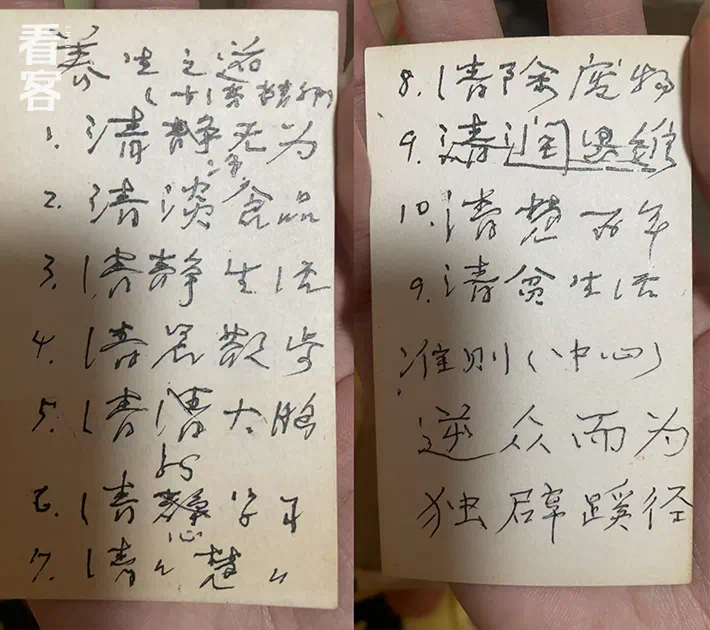 看客
养生之道
1. 清静无为
2. 清淡食品
3. 清静生活
4. 清晨散步
5. 清洁大肠
6. 清静
7. 清〃楚〃
8. 清除废物
9. 清润思维
10. 清楚百年
9. 清贫生活
准则(中心)
逆众而为
独辟蹊径